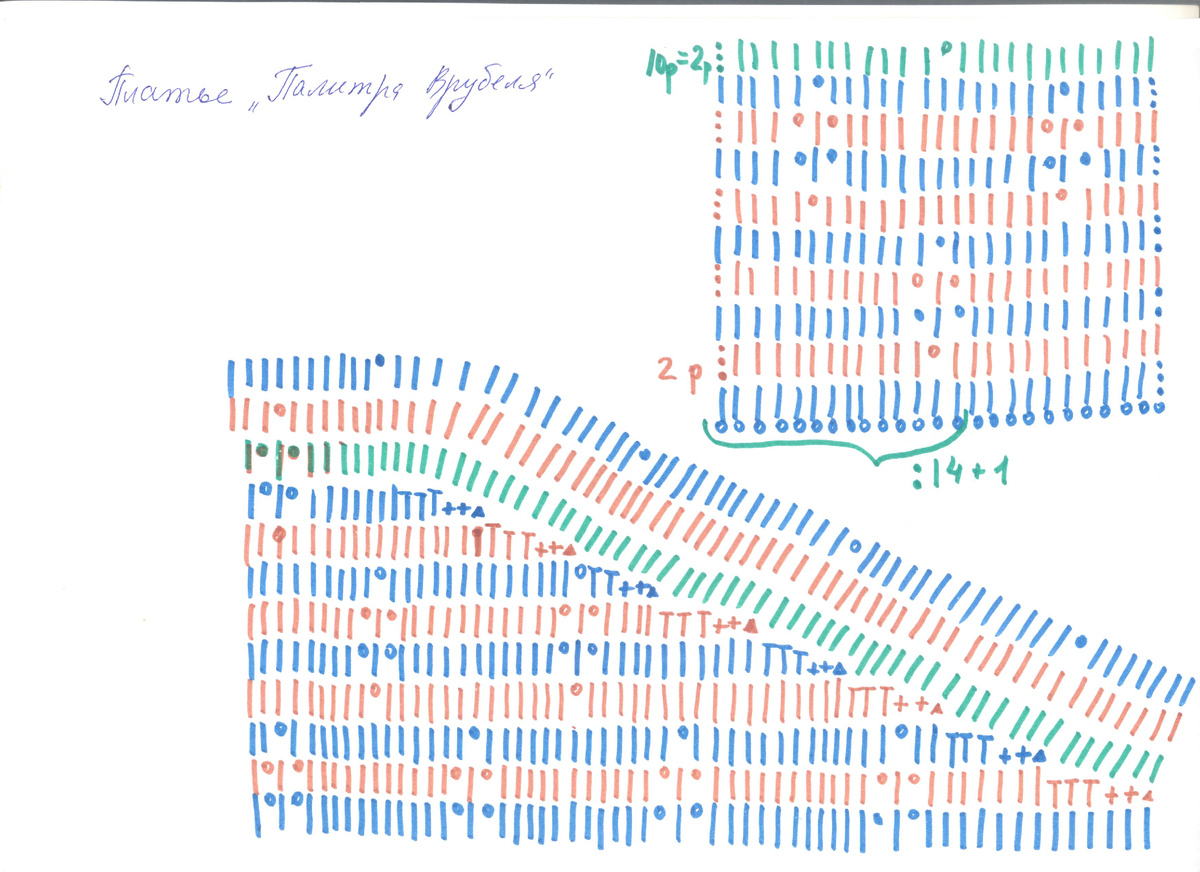 Платье „Палитра Врубеля“
10р=2р
2 р
:14+1